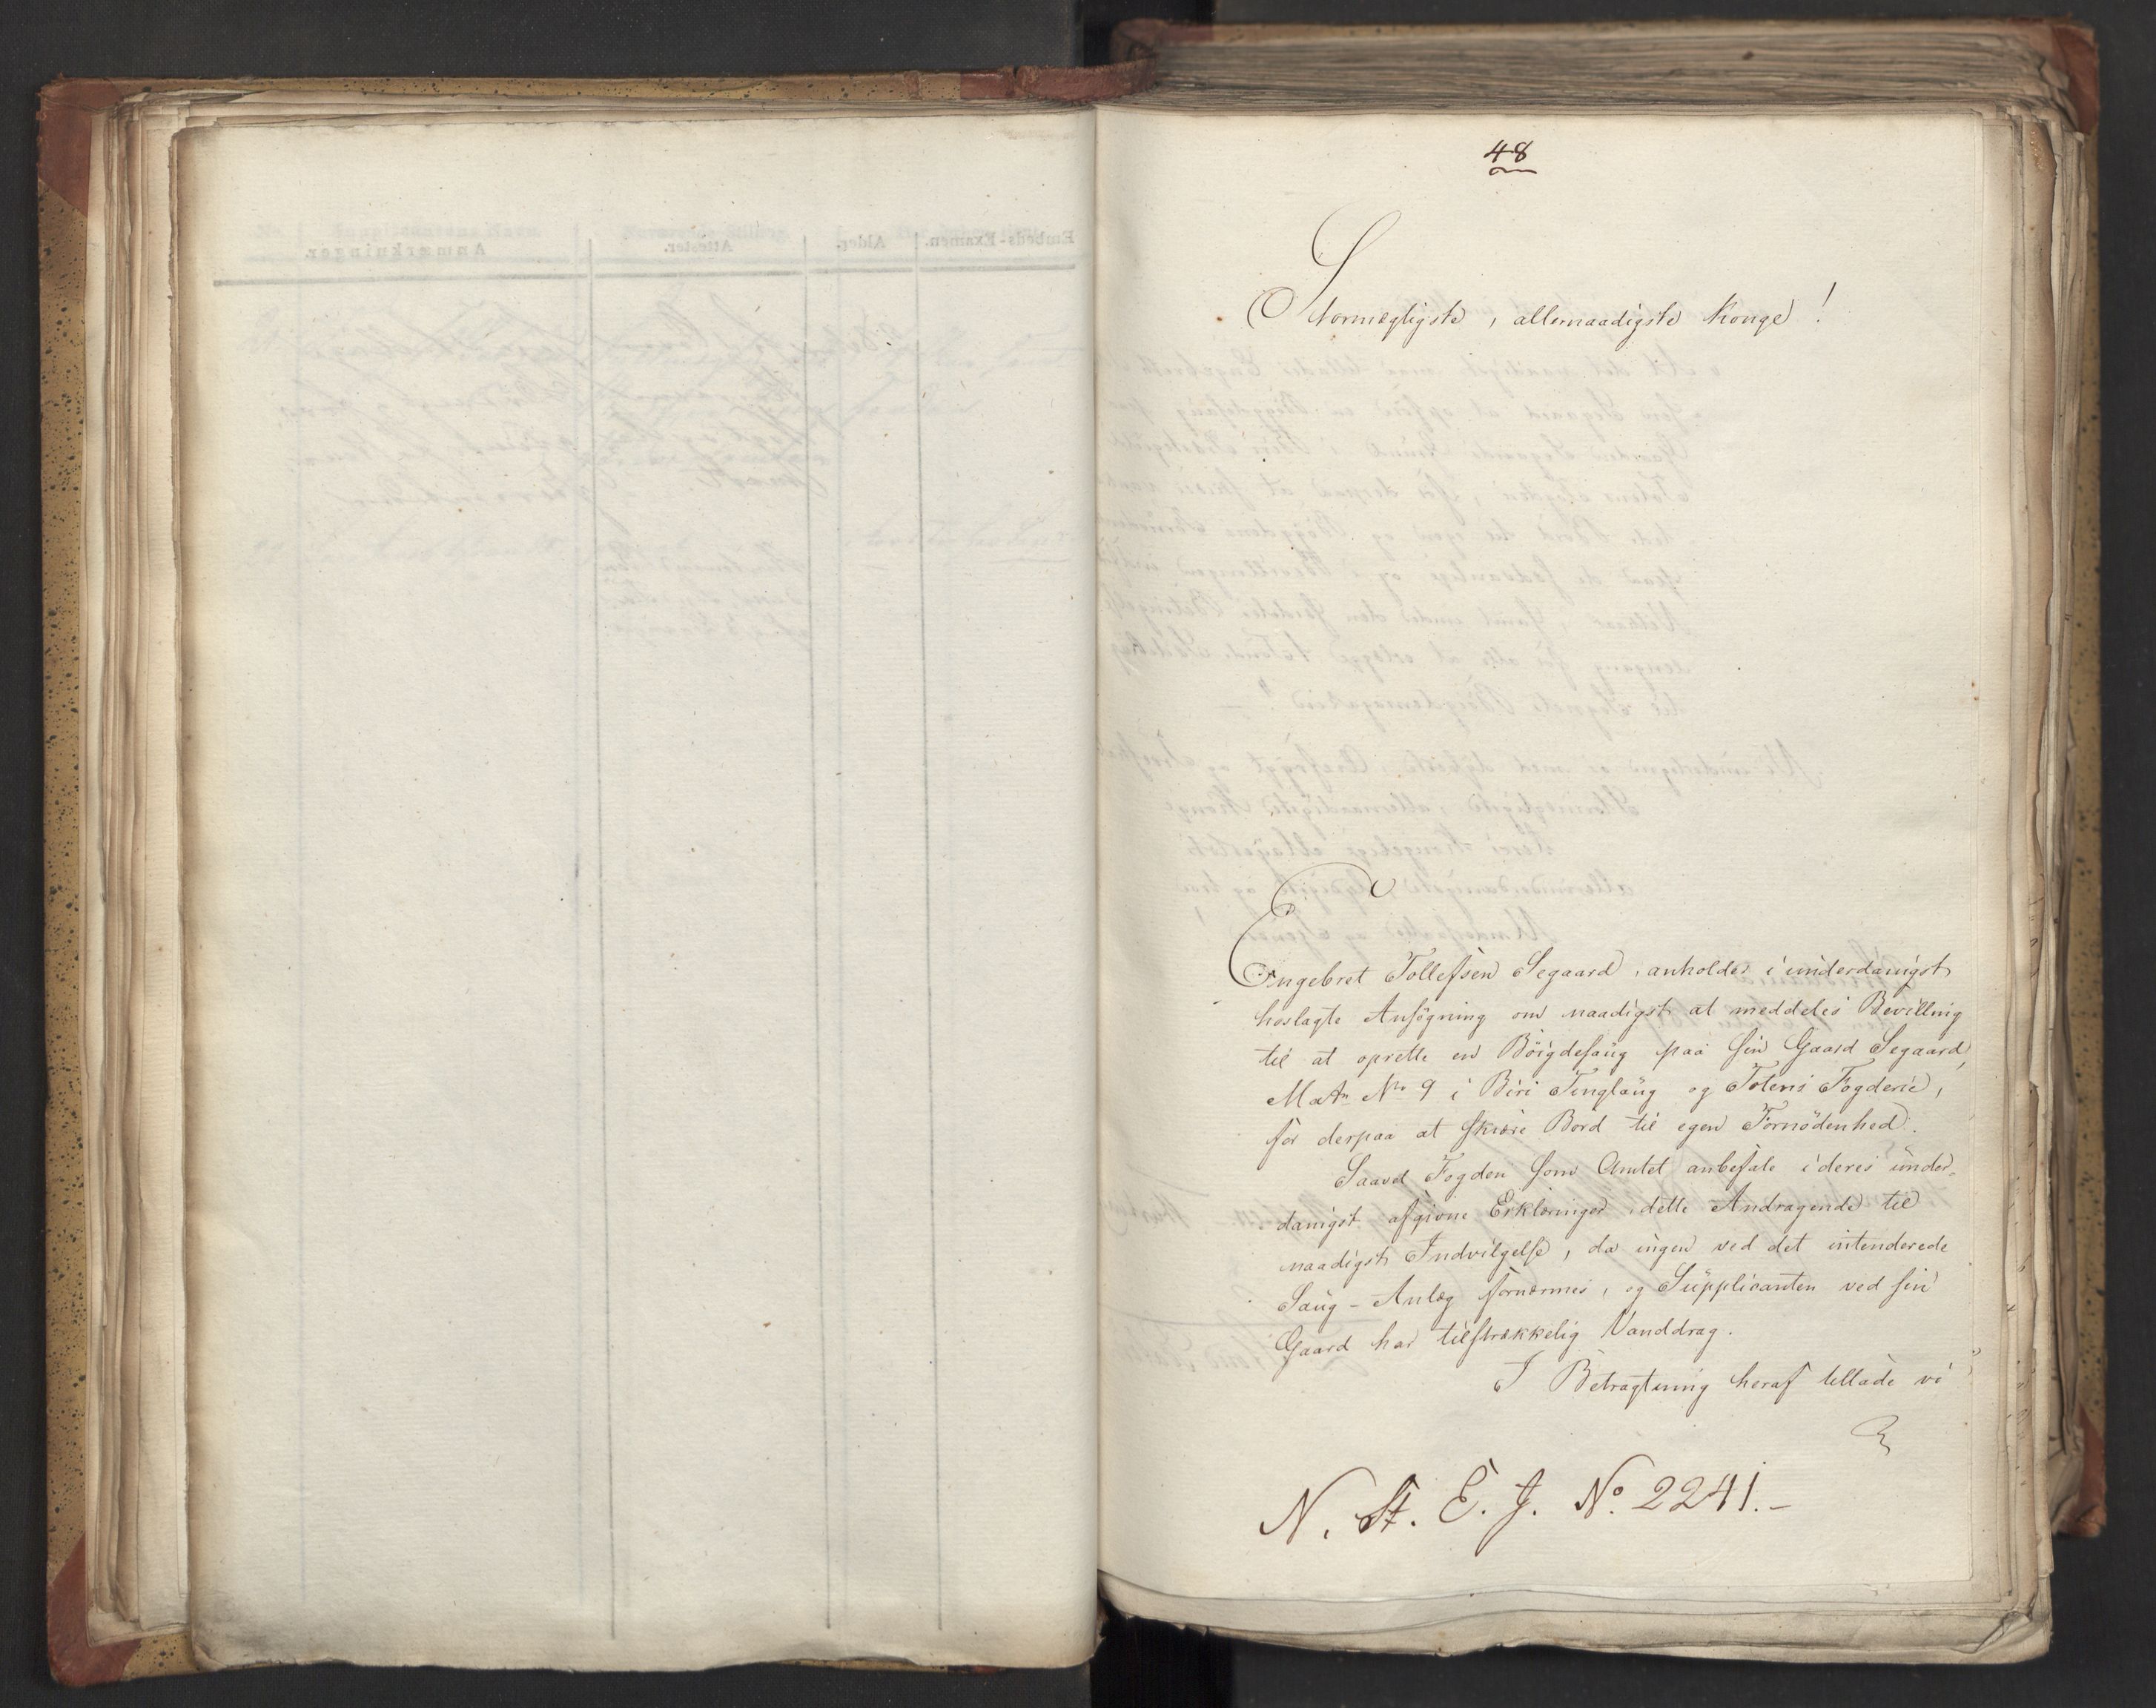 48
Stormægtigste, allernaadigste Konge!
Engebret Tollefsen Segaard, anholder i underdanigst
hoslagte Ansögning om naadigst at meddeles Bevilling
til at oprette en Böigdesaug paa sin Gaard Segaard,
Matr No 9 i Biri Tinglaug og Totens Fogderie,
for derpaa at skiære Bord til egen Fornödenhed.
Saavel Fogden som Amtet anbefale i deres under-
danigst afgivne Erklæringer dette Andragende til
naadigst Indvilgelse, da ingen ved det intenderede
Saug-Anlæg fornærmes, og Supplicanten ved sin
Gaard har tilstrækkelig Vanddrag.
I Betragtning heraf tillade vi
N. St. E. J. No. 2241.-
Embeds-Examen.
Alder.
Attester.
Anmærkninger.